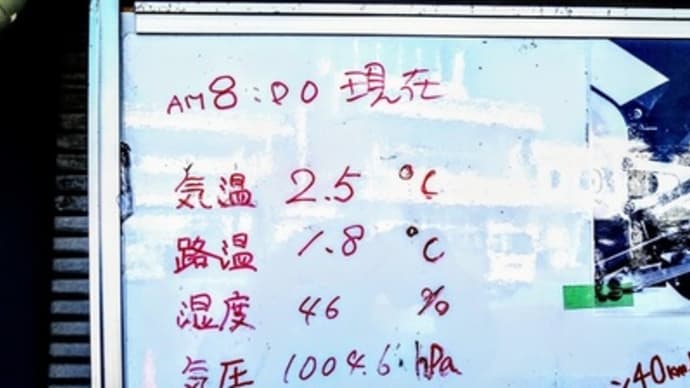 AM8:00 現在
気温 2.5 ℃
路温 1.8 ℃
湿度 46 %
気圧 1004.6 hPa
40km